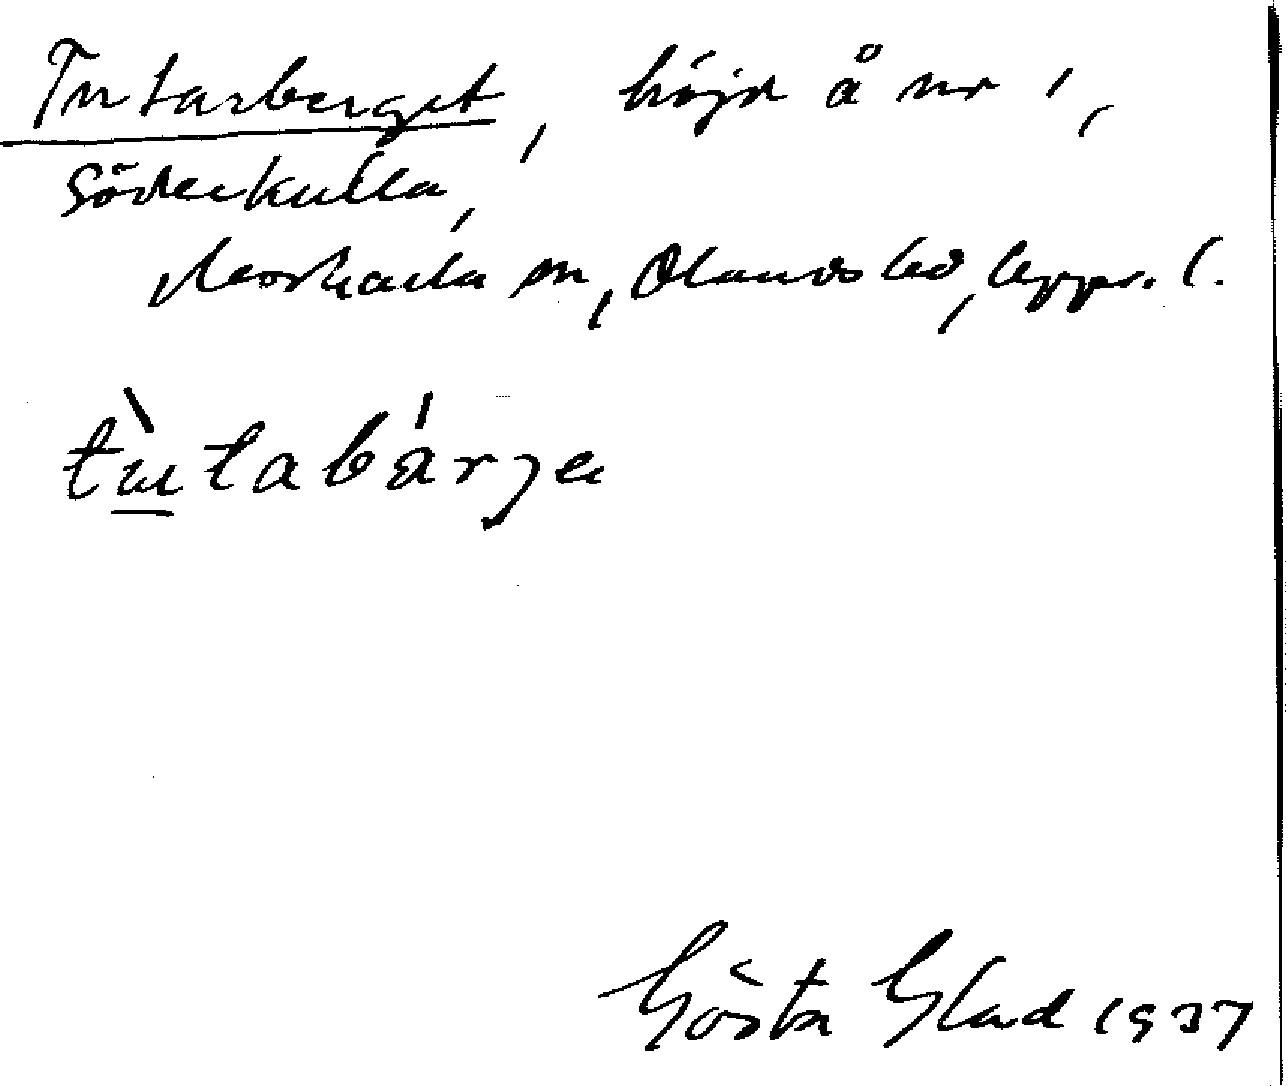 Tutarberget, höjd å nr 1,
Söderkulla,
Morkarla sn, Olands hd, Upps. l.
tutabärje
Gösta Glad 1937